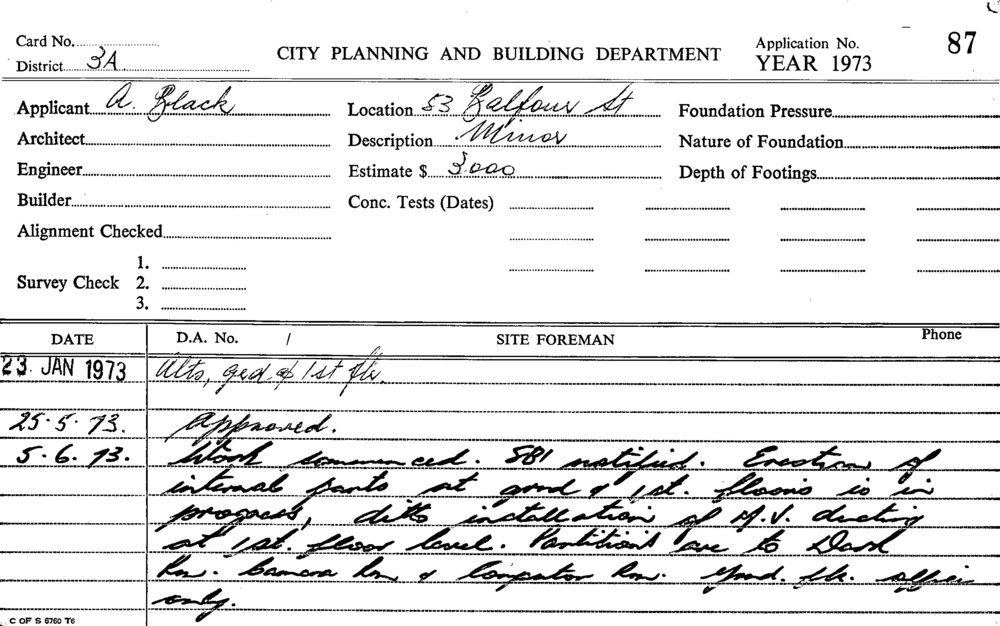 Card No. CITY PLANNING AND BUILDING DEPARTMENT Application No. 87
District 3A YEAR 1973
Applicant A. Black Location 53 Balfour St Foundation Pressure
Architect Description Minor Nature of Foundation
Engineer Estimate $ 3000 Depth of Footings
Builder Conc. Tests (Dates)
Alignment Checked
1.
Survey Check 2.
3.
DATE D.A. No. / SITE FOREMAN Phone
23 JAN 1973 Alts, grd & 1st flr.
25.5.73. Approved.
5.6.73. Work commenced. SBI notified. Erection of
internal parts at grnd & 1st. floors is in
progress, ditto installation of M.V. ducting
at 1st. floor level. Partitions are to Dark
Rm. Camera Rm & Computor Rm. Grnd. flr. office
only.
C OF S 6760 T6